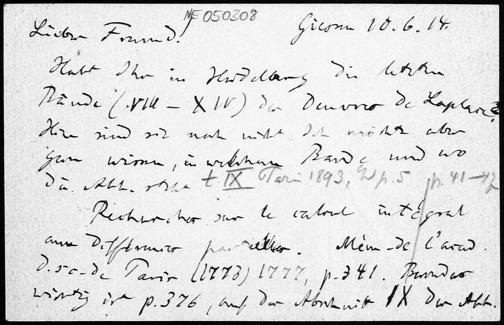 NE 050308
Lieber Freund! Giessen 10.6.14.
Habt Ihr in Heidelberg die letzten
Bände (VIII – XIV) der Oeuvres de Laplace?
Hier sind sie noch nicht. Ich möchte aber
gern wissen, in welchem Bande und wo
die Abh. steht t. IX Paris 1893, p. 5 pp. 41–
Recherches sur le calcul intégral
aux différences partielles. Mém. de l'acad.
d. sc. de Paris (1773) 1777, p. 341. Besonders
wichtig ist p. 376, auf der Abschnitt IX der Abh.